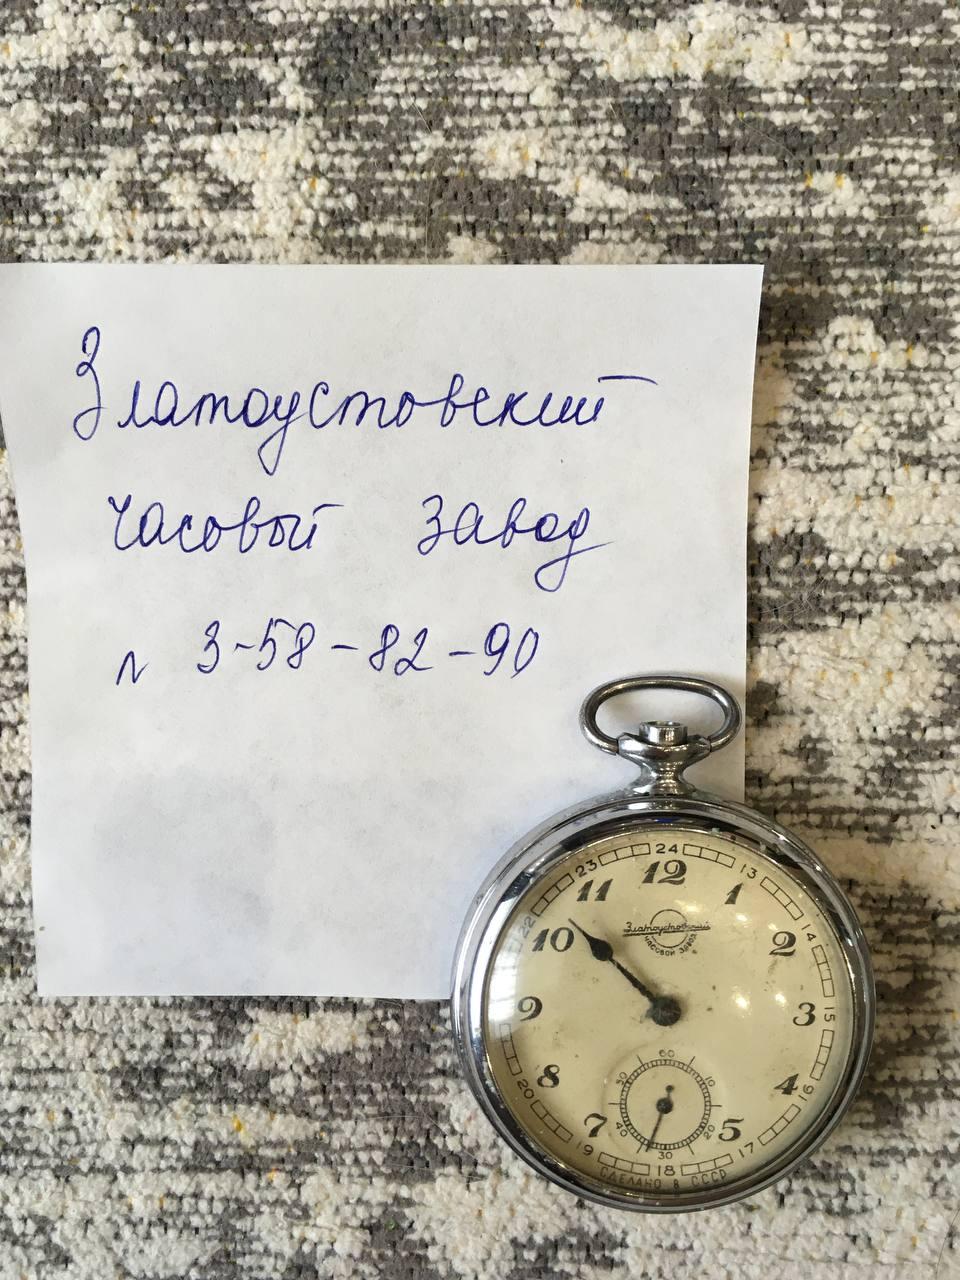 Златоустовский
часовой завод
N 3-58-82-90
24
23
13
12
11
1
22
14
10
2
Златоустовский
ЧАСОВОЙ ЗАВОД
9
3
15
8
4
20
16
60
50
10
40
20
30
7
5
19
17
18
СДЕЛАНО В СССР